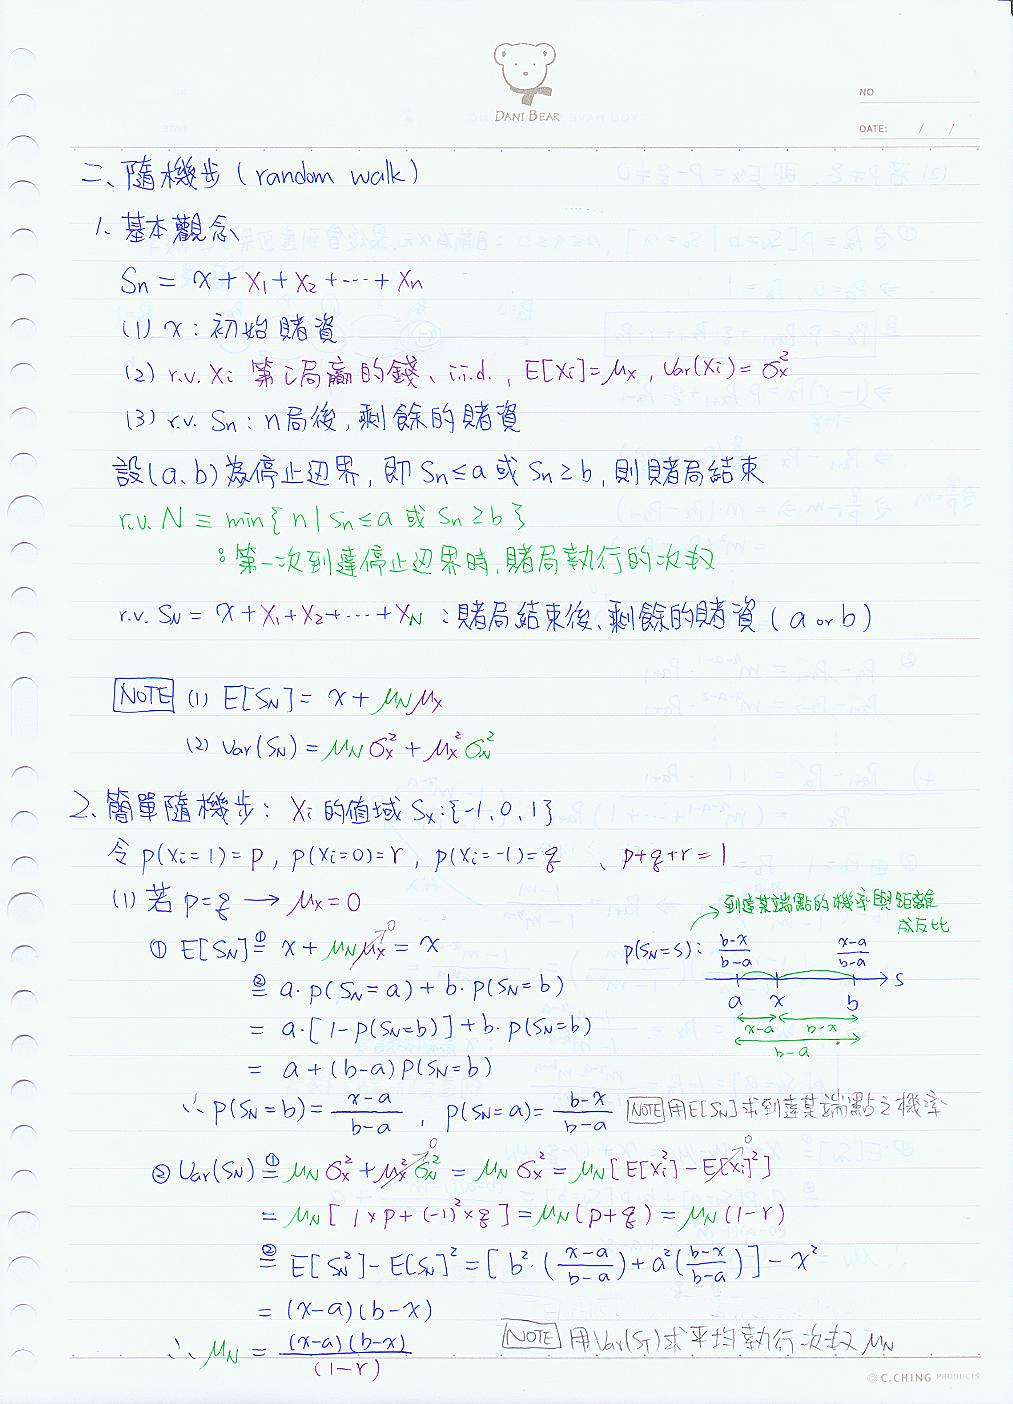 DANI BEAR
NO.
DATE: / /
二、隨機步(random walk)
1. 基本觀念
Sn = x + X1 + X2 + ... + Xn
(1) x:初始賭資
(2) r.v. Xi 第i局贏的錢、i.i.d., E[Xi]=μx, Var(Xi)=σx²
(3) r.v. Sn:n局後,剩餘的賭資
設(a、b)為停止边界,即 Sn≤a 或 Sn≥b,則賭局結束
r.v. N ≡ min{n | Sn≤a 或 Sn≥b}
:第一次到達停止边界時,賭局執行的次数
r.v. SN = x + X1 + X2 + ... + XN :賭局結束後、剩餘的賭資(a or b)
NOTE (1) E[SN] = x + μNμx
(2) Var(SN) = μNσx² + μx²σN²
2. 簡單隨機步: Xi 的值域 Sx:{-1, 0, 1}
令 p(Xi=1)=p, p(Xi=0)=r, p(Xi=-1)=q 、p+q+r=1
(1) 若 p=q → μx=0
到達某端點的機率與距離
成反比
① E[SN] ①= x + μNμx = x
0
p(SN=s): (b-x)/(b-a) (x-a)/(b-a)
②= a·p(SN=a) + b·p(SN=b)
s
a x b
= a·[1-p(SN=b)] + b·p(SN=b)
x-a b-x
b-a
= a + (b-a)p(SN=b)
∴ p(SN=b) = (x-a)/(b-a), p(SN=a) = (b-x)/(b-a) NOTE 用E[SN]求到達某端點之機率
② Var(SN) ①= μNσx² + μx²σN² = μNσx² = μN[E[Xi²] - E[Xi]²]
0 0
= μN[1×p + (-1)²×q] = μN(p+q) = μN(1-r)
②= E[SN²] - E[SN]² = [b²·((x-a)/(b-a)) + a²((b-x)/(b-a))] - x²
= (x-a)(b-x)
∴ μN = (x-a)(b-x)/(1-r)
NOTE 用Var(ST)求平均執行次数 μN
© C.CHING PRODUCTS